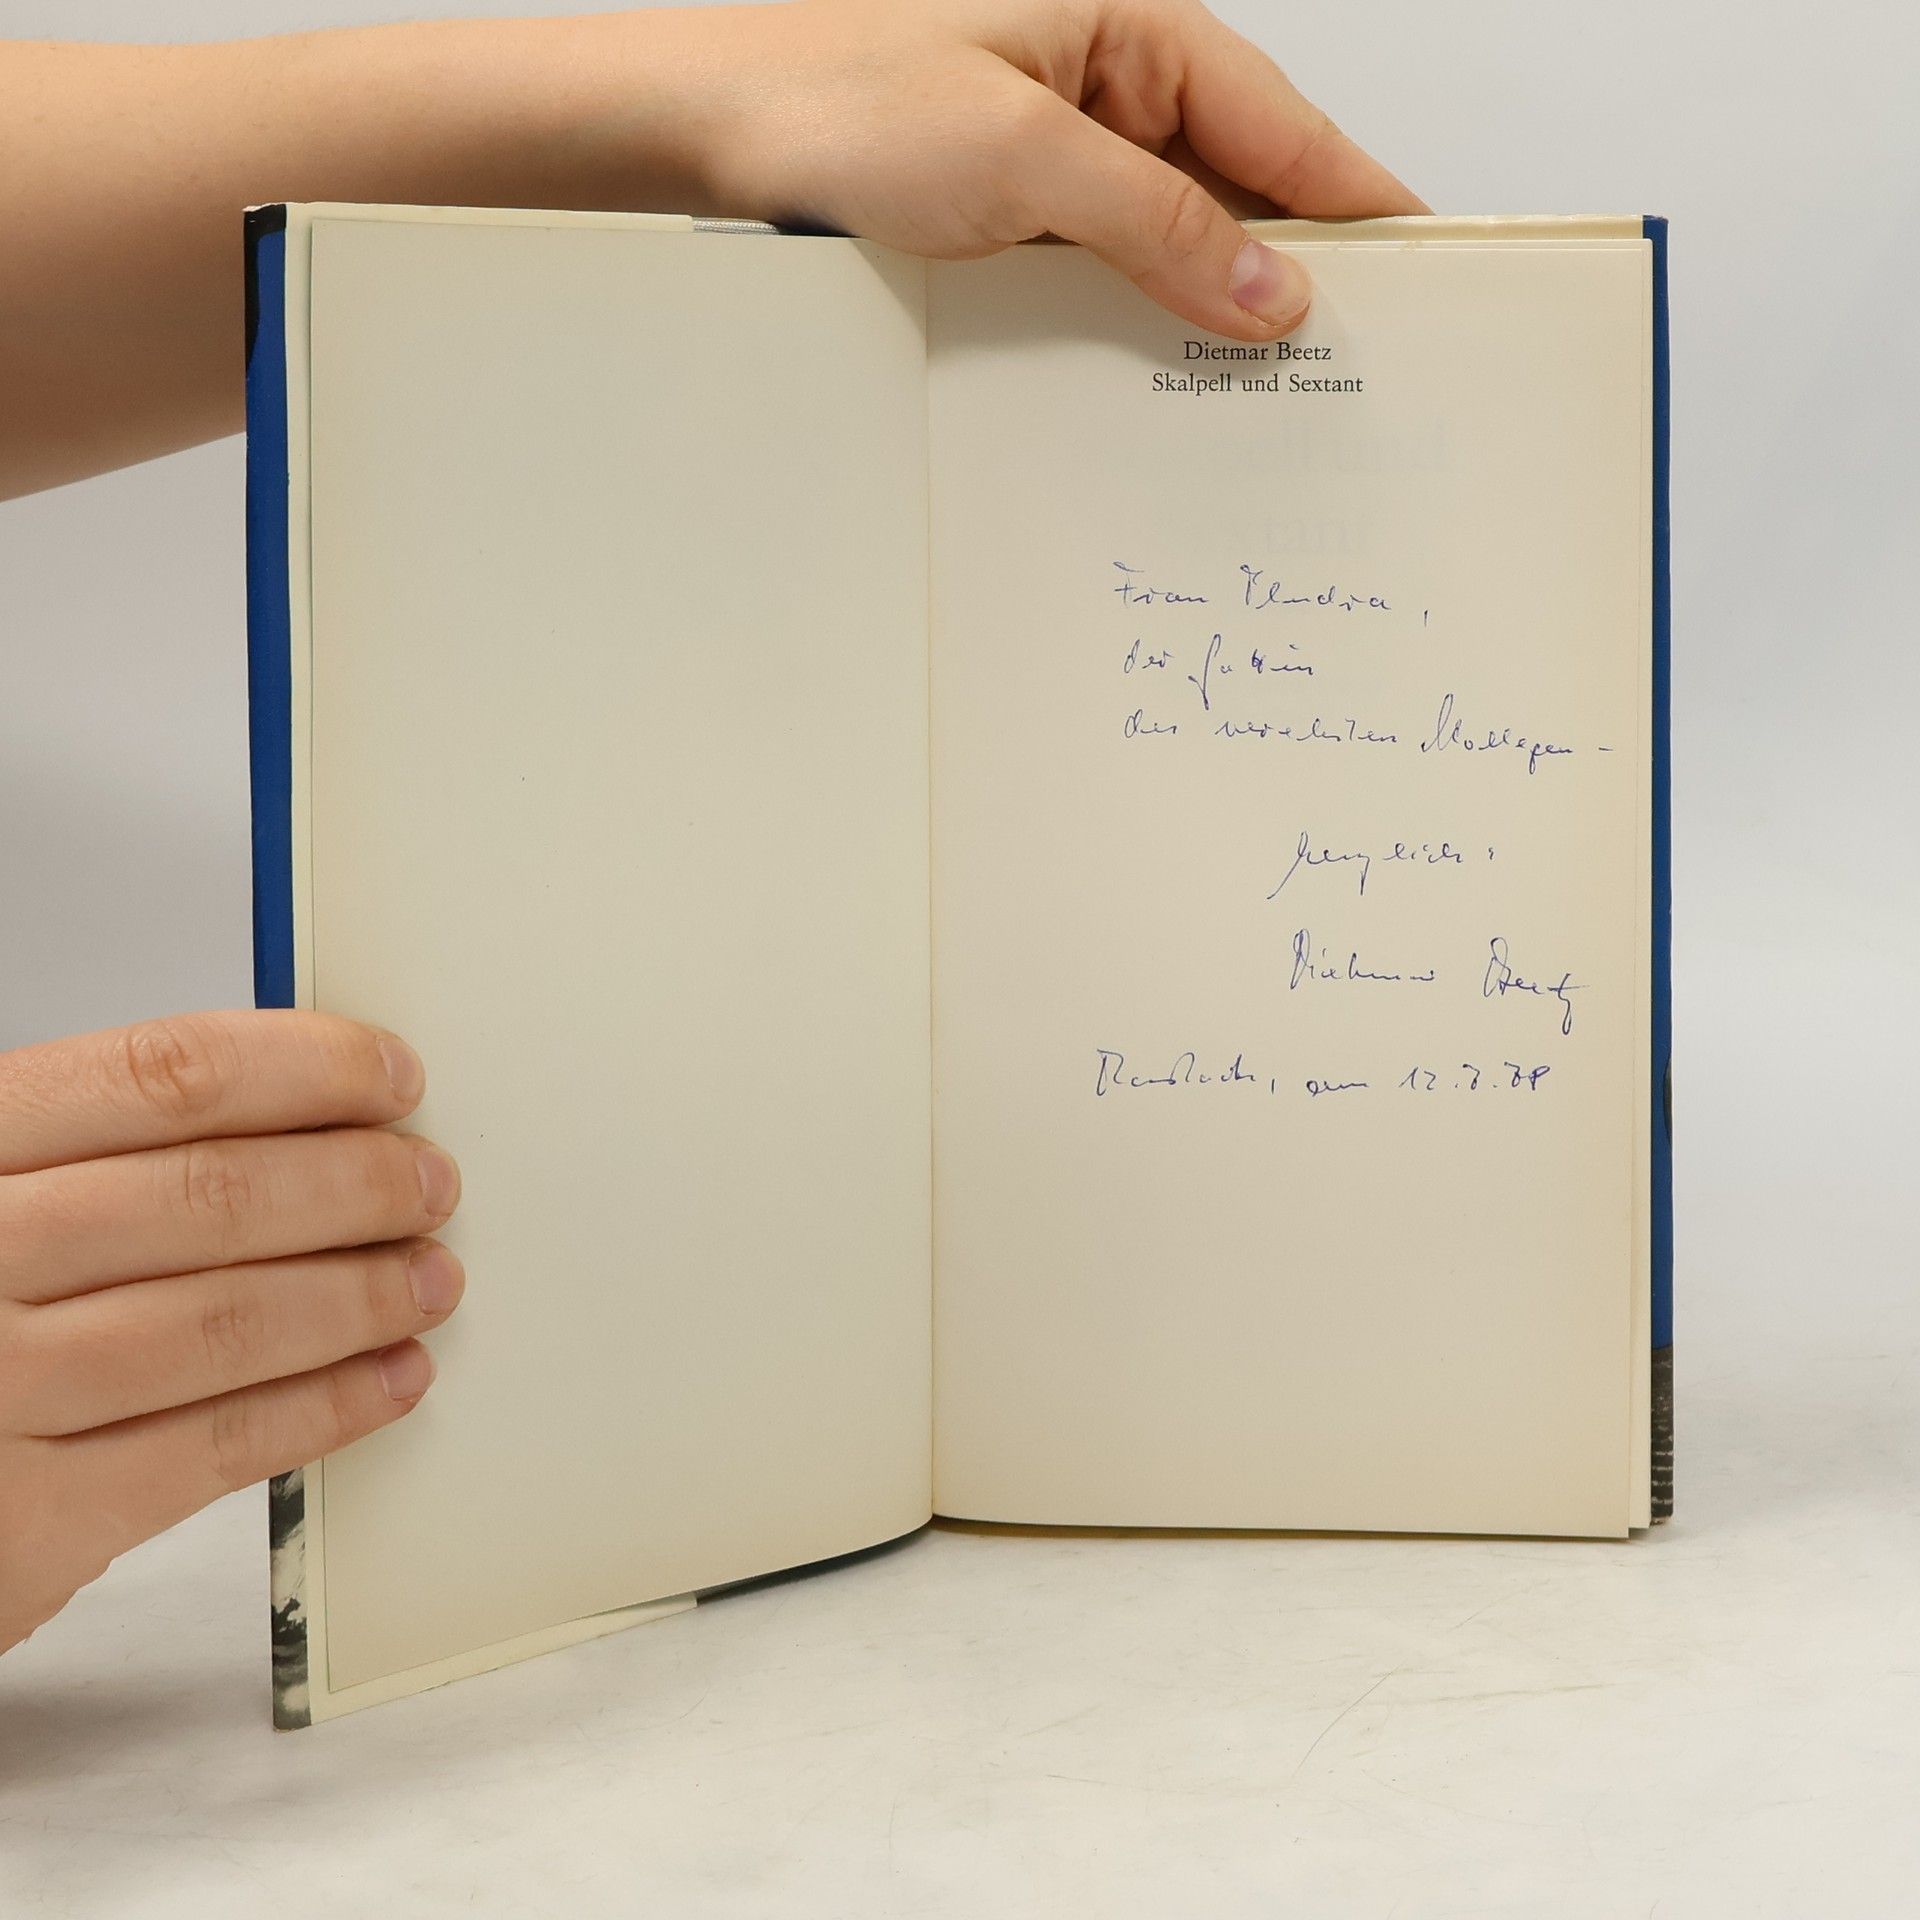 Dietmar Beetz
Skalpell und Sextant
Frau Pludra,
der Gattin
des verehrten Kollegen –
herzlich:
Dietmar Beetz
am 12.7.78